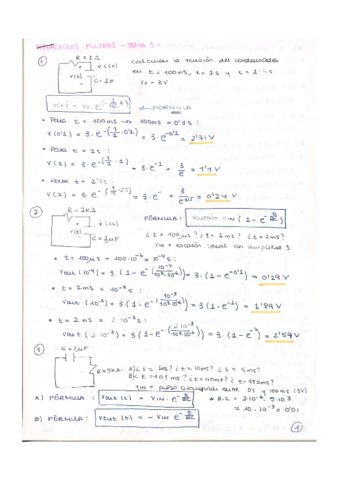 EJERCICIOS FILTROS - TEMA 3 -
① R = 1Ω
calcular la tensión del condensador
en t = 100ms, t = 1s y t = 2'5s
C = 1F
V0 = 3V
V(t) = V0 · e^(-1/RC · t) → FÓRMULA
• Para t = 100ms → 100ms = 0'1s :
V(0'1) = 3·e^-(1/1 · 0'1) = 3·e^-0'1 = 2'71V
• Para t = 1s :
V(1) = 3·e^-(1/1 · 1) = 3·e^-1 = 3/e = 1'1V
• Para t = 2'5s :
= 0'24V
② R = 1KΩ
FÓRMULA :
C = 1µF
¿t = 100µs? ¿t = 1ms? ¿t = 2ms?
VIN = escalón ideal con amplitud 3
• t = 100µs = 100·10^-6 = 10^-4s :
Vout (10^-4) = 3(1-e^-(10^-4/10^3·10^-6)) = 3·(1-e^-0'1) = 0'29V
• t = 1ms = 10^-3s :
Vout (10^-3) = 3·(1-e^-(10^-3/10^3·10^-6)) = 3(1-e^-1) = 1'89V
• t = 2ms = 2·10^-3s :
Vout (2·10^-3) = 3·(1-e^-(2·10^-3/10^3·10^-6)) = 3·(1-e^-2) = 2'59V
③ C = 2µF
R = 5KΩ
A) ¿t = 1ms? ¿t = 10ms? ¿t = 5ms?
B) ¿t = 101ms? ¿t = 110ms? ¿t = 150ms?
A) FÓRMULA : Vout (t) = VIN · e^-t/RC
* R·C = 2·10^-6 · 5·10^3
= 10·10^-3 = 0'01
B) FÓRMULA : Vout (t) = -VIN · e^-t/RC
①